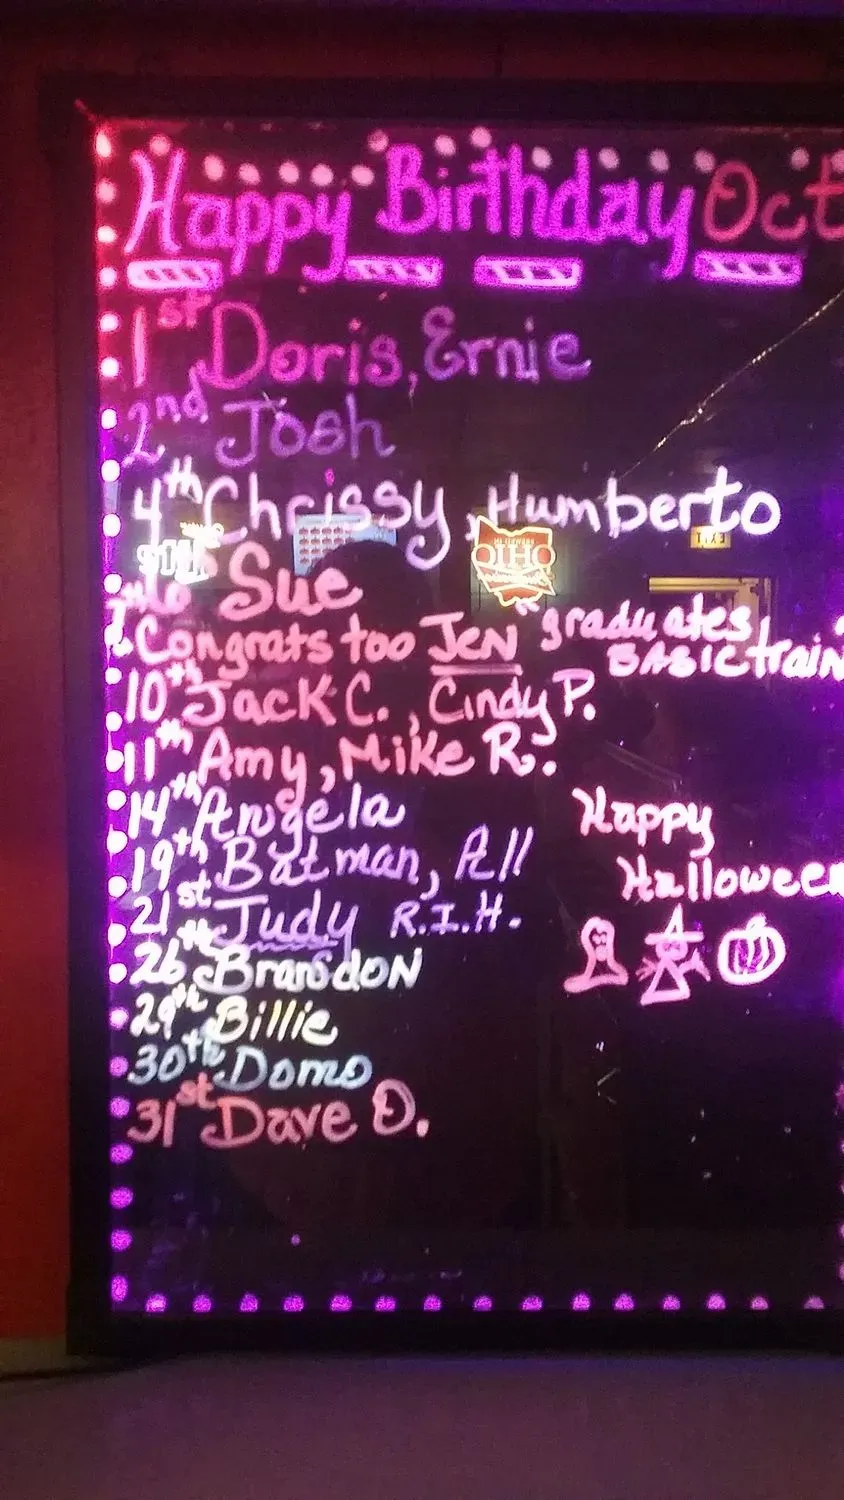 Happy Birthday Oct
1st Doris, Ernie
2nd Josh
4th Chrissy, Humberto
OHIO
EXIT
Sue
Congrats too JEN graduates
BASIC train
10th Jack C., Cindy P.
11th Amy, Mike R.
14th Angela
19th Batman, All
21st Judy R.I.H.
26th Brandon
29th Billie
30th Domo
31st Dave O.
Happy
Halloween